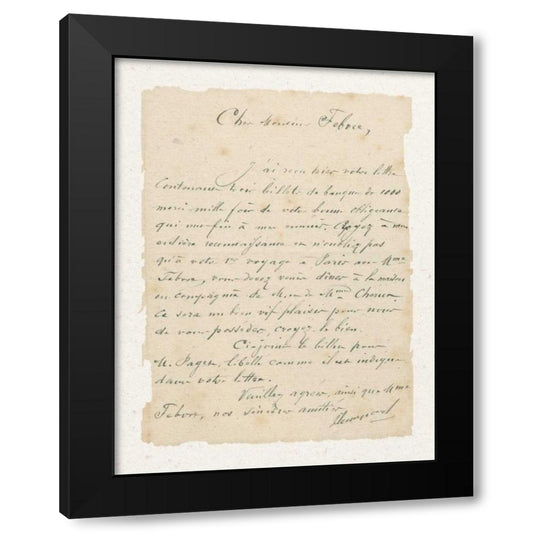 Cher Monsieur Febvre,
J'ai reçu hier votre lettre
Contenant billets de banque de 1000
merci mille fois de votre bonne obligeance
qui met fin à mes ennuis. Croyez à mon
entière reconnaissance et n'oubliez pas
qu'à votre 1er voyage à Paris avec Mme
Febvre, vous devez venir dîner à la maison
en compagnie de M. et de Mme
Ce sera un bien vif plaisir pour nous
de vous posséder, croyez le bien.
Ci-joint le billet pour
M. Paget, libellé comme il est indiqué
dans votre lettre.
Veuillez agréer, ainsi que Mme
Febvre, nos sincères amitiés